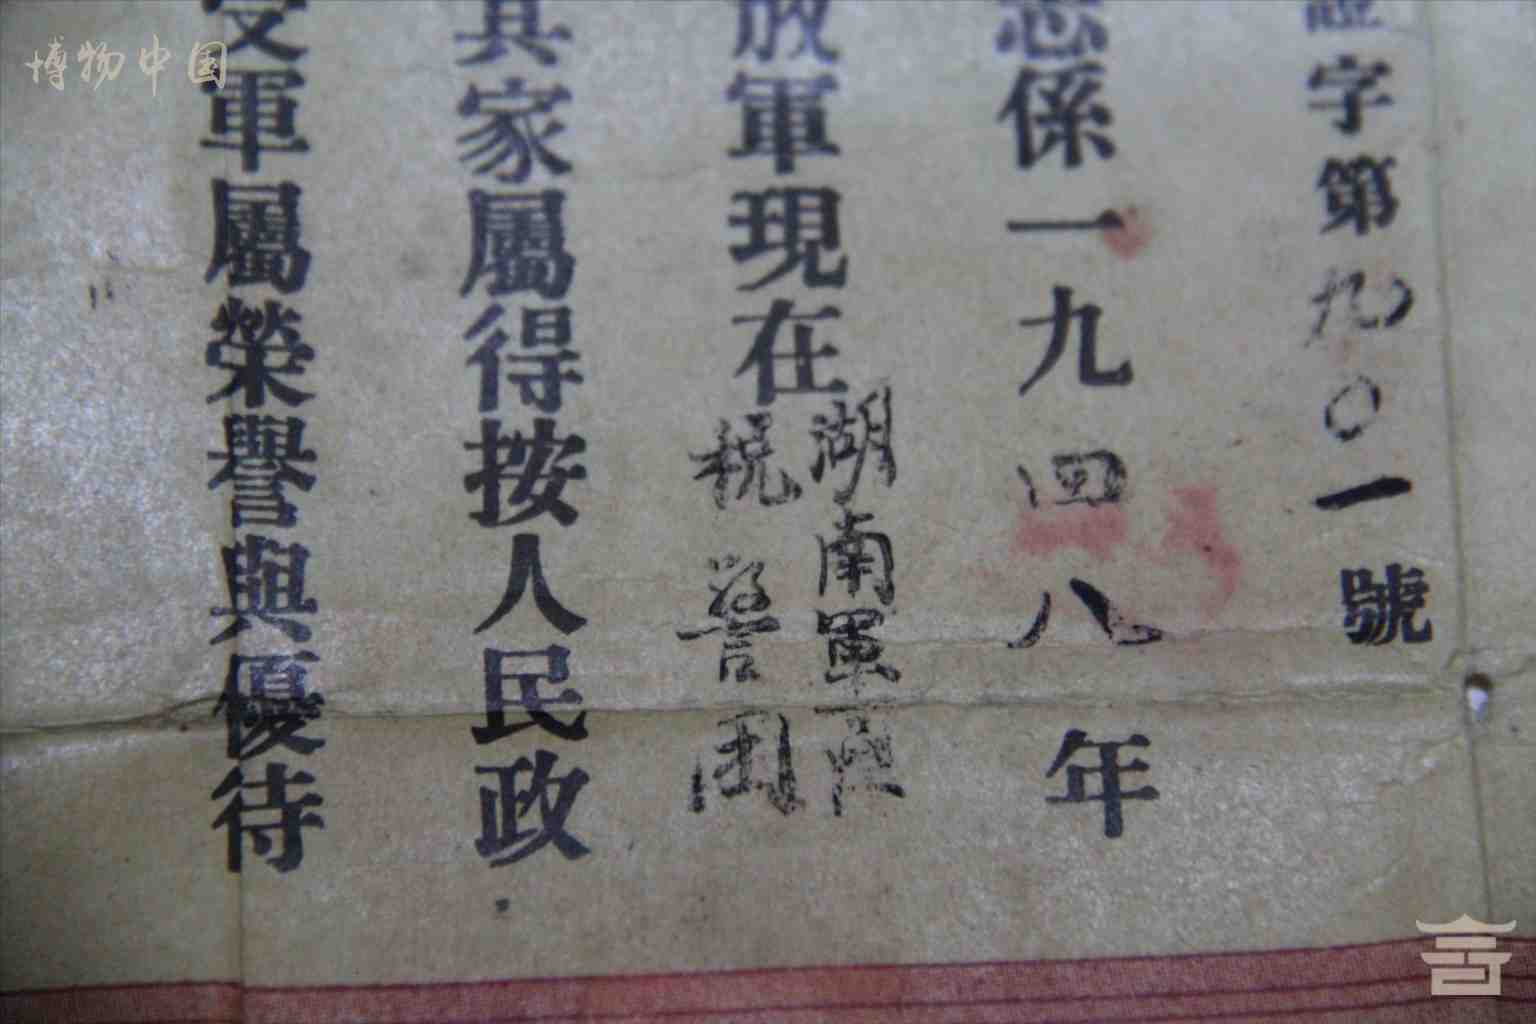 博物中国
證字第九〇一號
志係一九四八年
放軍現在湖南軍區
税警团
其家屬得按人民政
受軍屬榮譽與優待